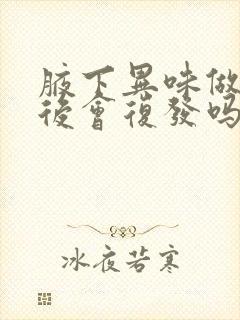 腋下異味做
後會復發吗
冰夜若寒